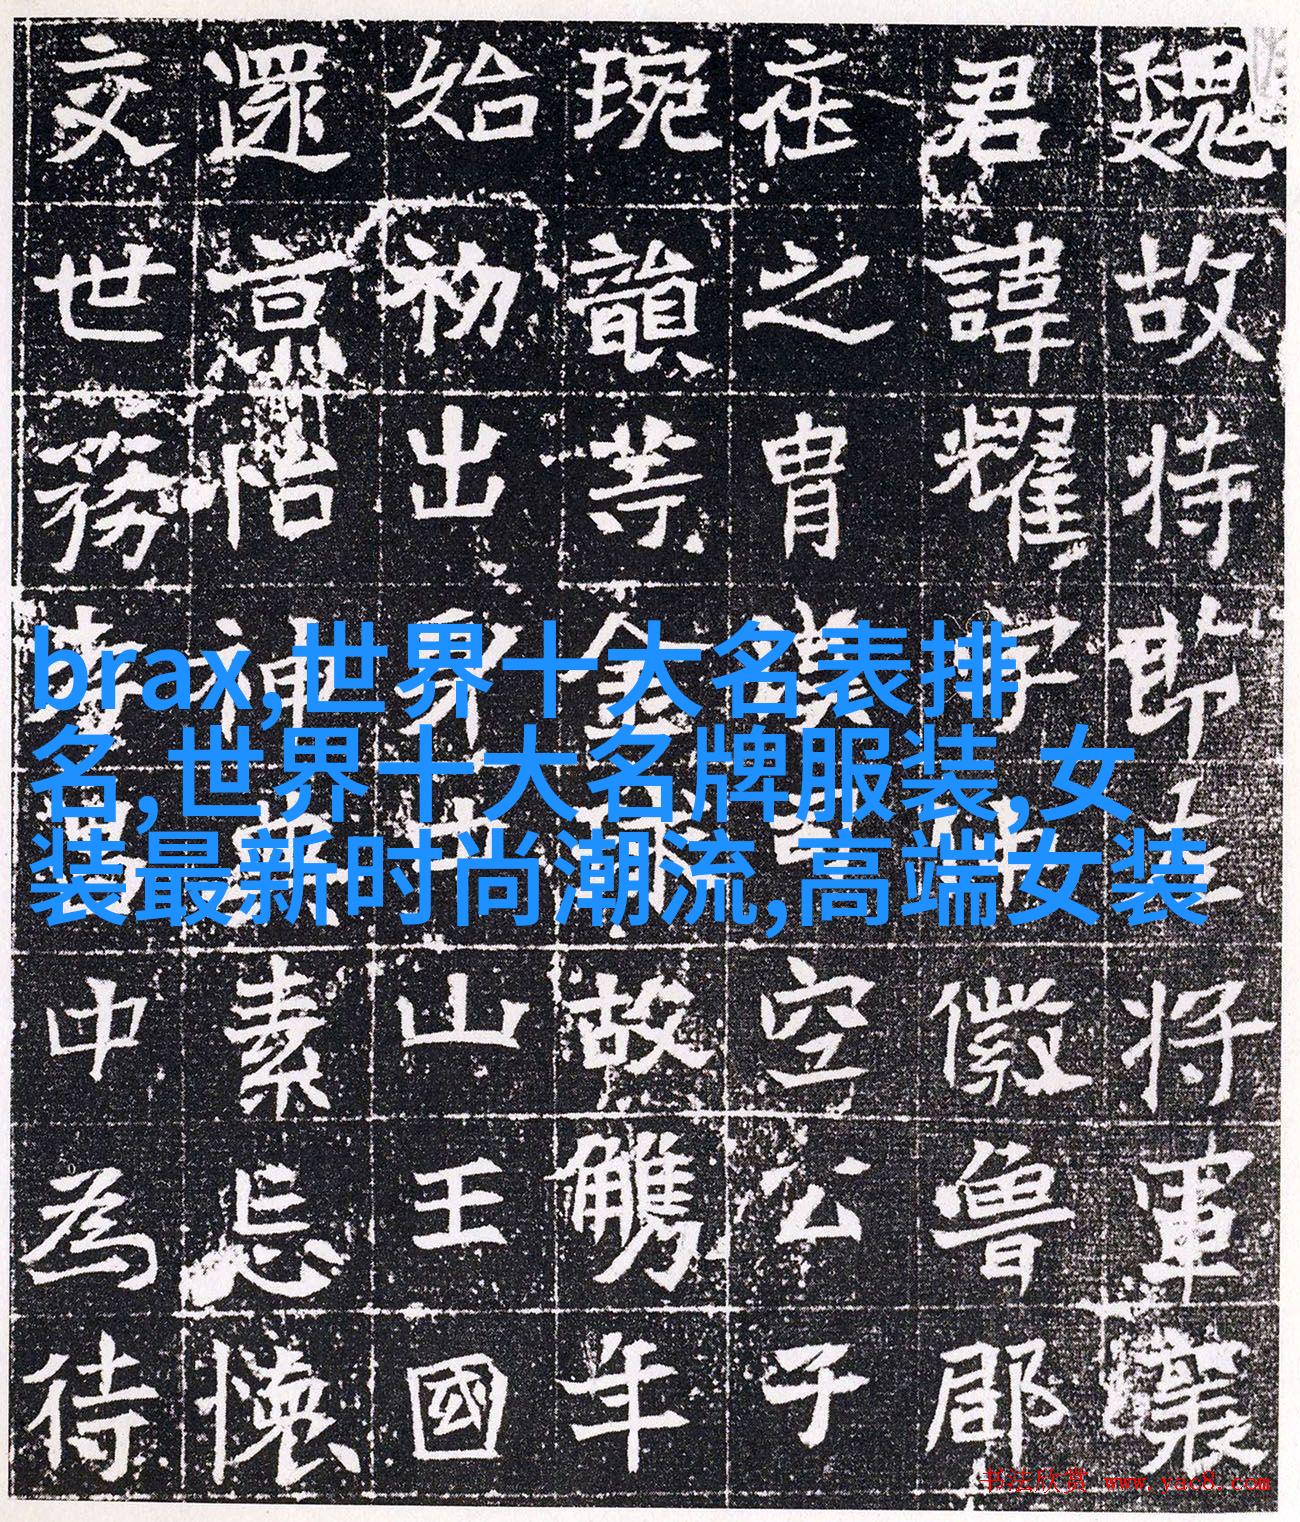 魏故持節將軍襄
君諱耀字徽魯郡
之胄漢空公子
琬韻等金故觹年
始初出身山王國
還京怡神素忘懷
交世務中為待
brax,世界十大名表排
名,世界十大名牌服装,女
装最新时尚潮流,高端女装
书法欣赏 www.yac8.com